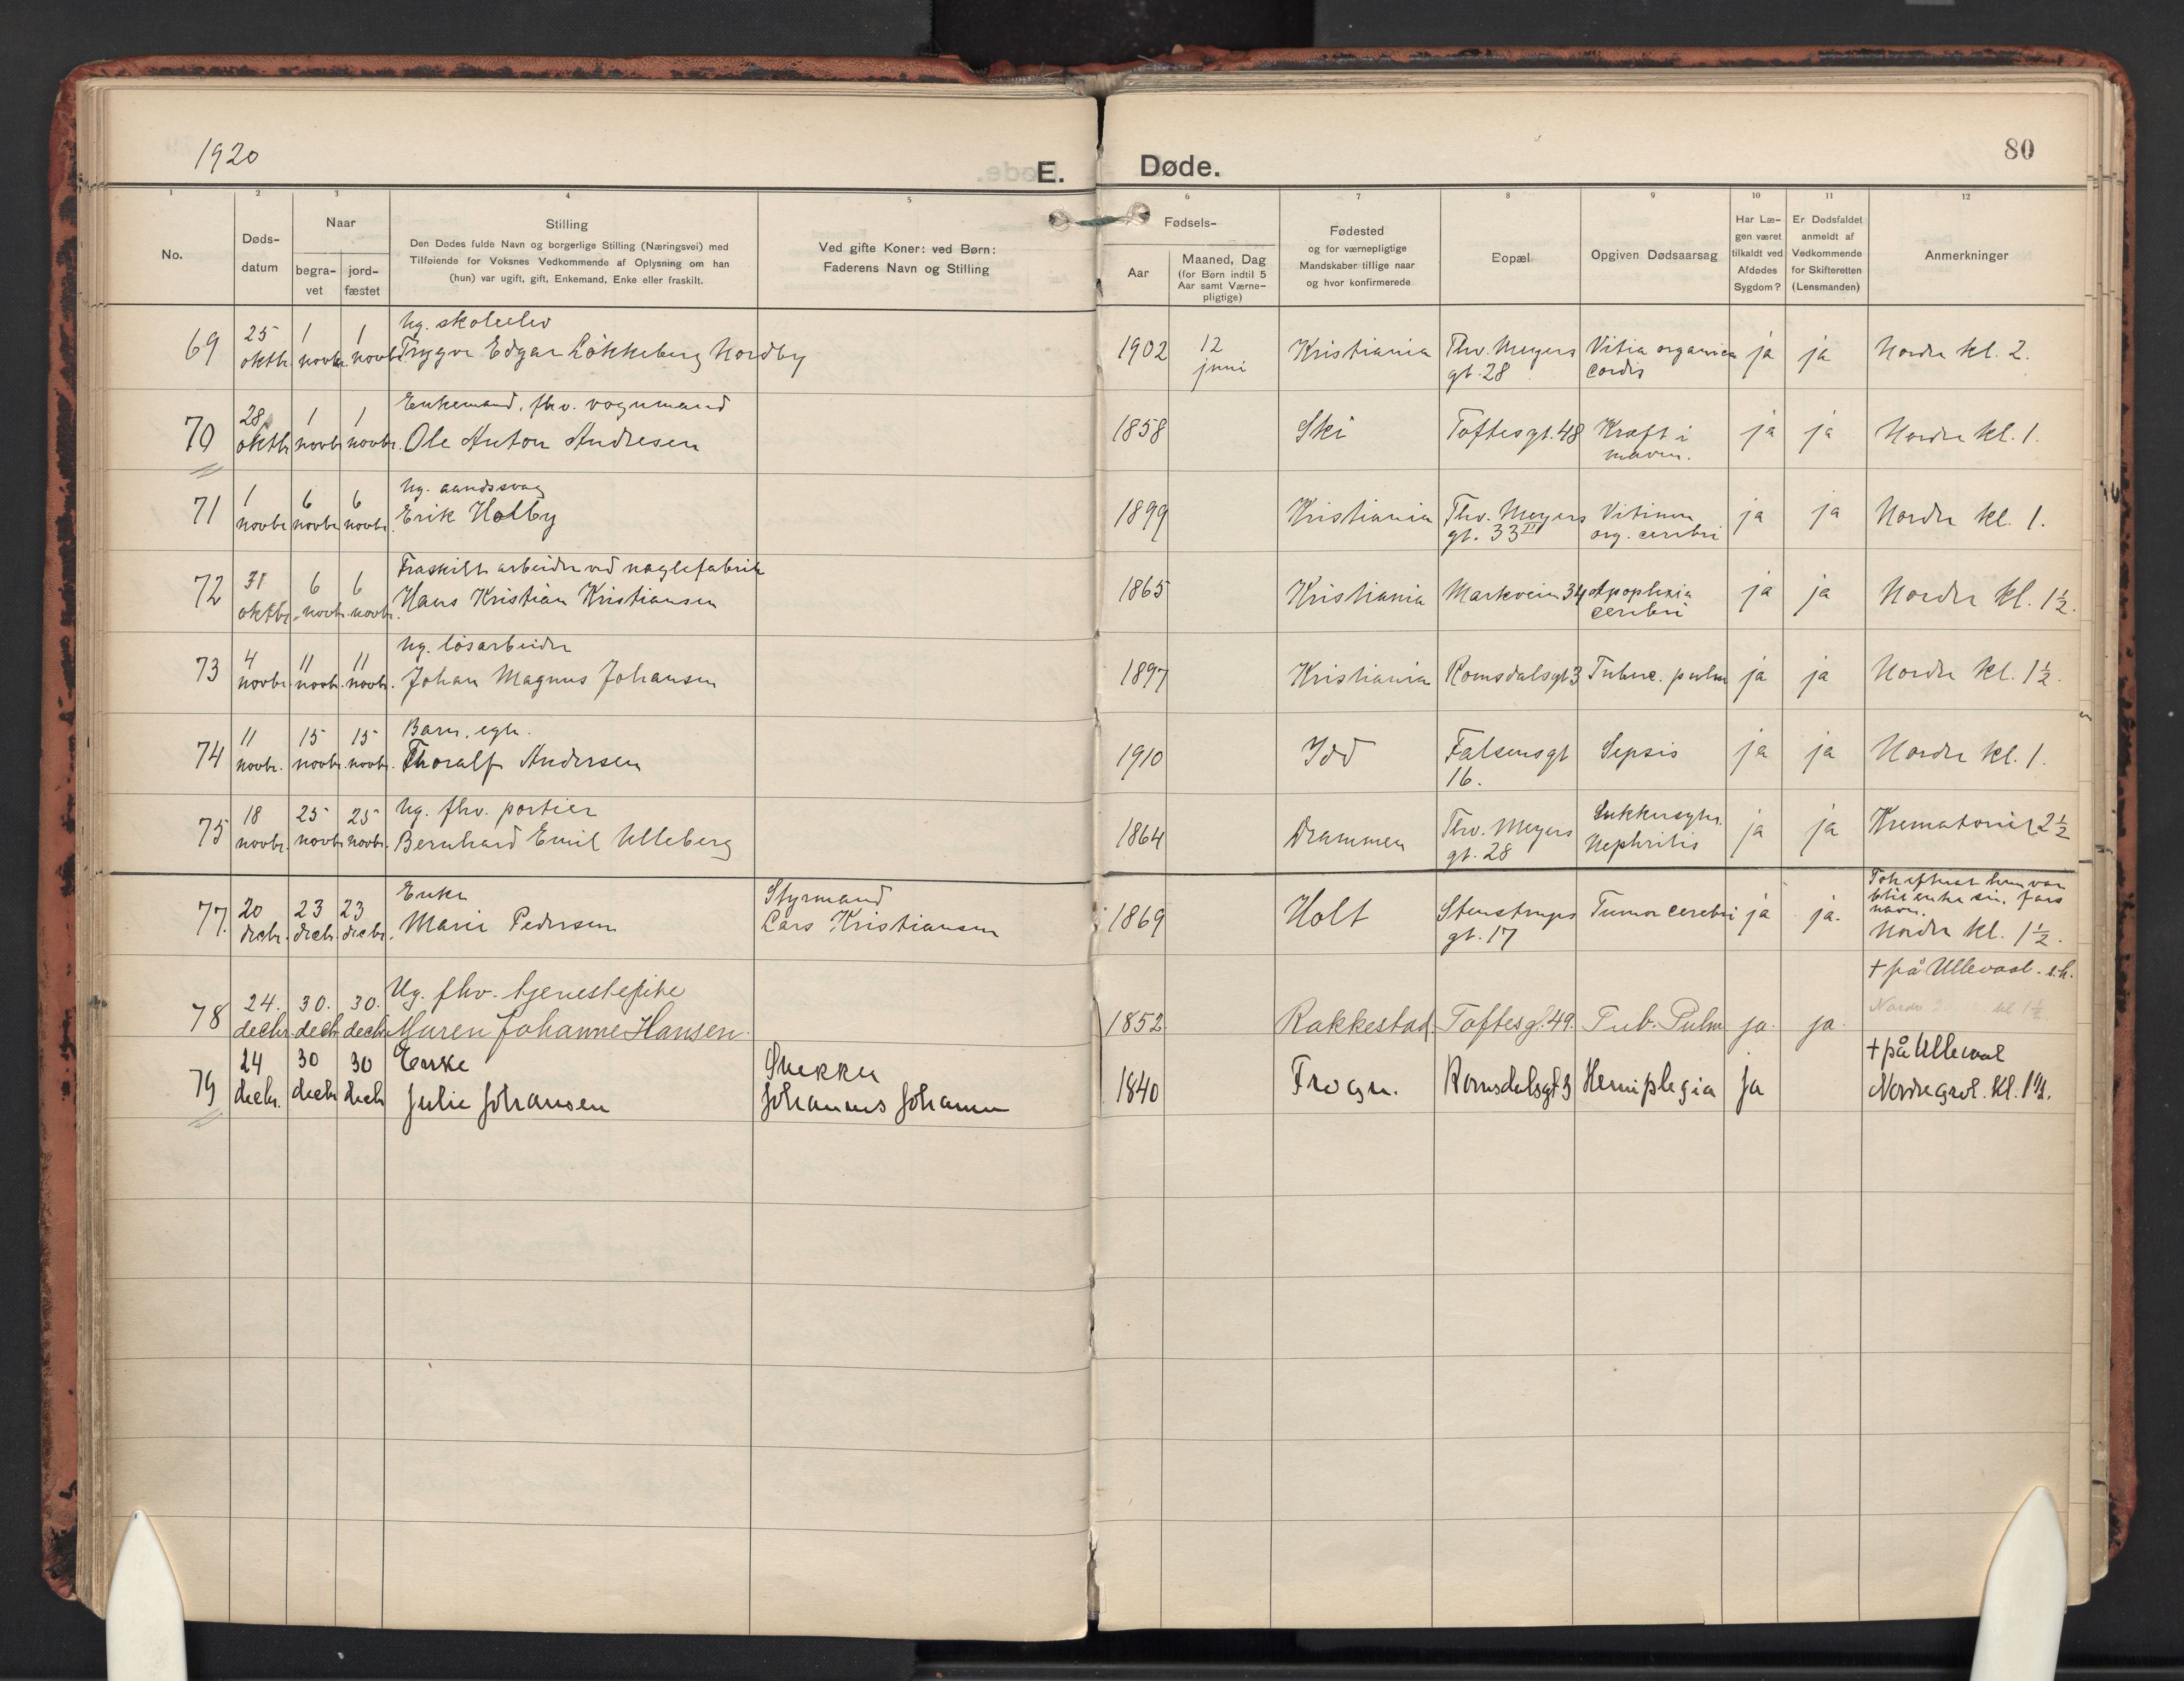 1920
80
E. Døde.
1 2 3 4 5 6 7 8 9 10 11 12
No.
Døds-
datum
Naar
begra-
vet
jord-
fæstet
Stilling
Den Dødes fulde Navn og borgerlige Stilling (Næringsvei) med
Tilføiende for Voksnes Vedkommende af Oplysning om han
(hun) var ugift, gift, Enkemand, Enke eller fraskilt.
Ved gifte Koner: ved Børn:
Faderens Navn og Stilling
Fødsels-
Aar
Maaned, Dag
(for Børn indtil 5
Aar samt Værne-
pligtige)
Fødested
og for værnepligtige
Mandskaber tillige naar
og hvor konfirmerede
Bopæl
Opgiven Dødsaarsag
Har Læ-
gen været
tilkaldt ved
Afdødes
Sygdom?
Er Dødsfaldet
anmeldt af
Vedkommende
for Skifteretten
(Lensmanden)
Anmerkninger
25 1 1 Ug. skoleelev
69 oktbr. novbr novbr Trygve Edgar Løkkeberg Nordby 1902 12 Kristiania Thv. Meyers Vitia organica ja ja Nordre kl. 2.
juni gt. 28 cordis
28 1 1 Enkemand, fhv. vognmand
70 oktbr novbr novbr. Ole Anton Andresen 1858 Ski Toftesgt. 48 Kræft i ja ja Nordre kl. 1.
maven.
1 6 6 Ug. aandssvag
71 novbr novbr novbr. Erik Holby 1899 Kristiania Thv. Meyers Vitium ja ja Nordre kl. 1.
gt. 33 II org. cerebri
31 6 6 Fraskilt arbeider ved naglefabrik
72 oktbr. novbr. novbr. Hans Kristian Kristiansen 1865 Kristiania Markveien 34 Apoplexia ja ja Nordre kl. 1½.
cerebri
4 11 11 Ug. løsarbeider
73 novbr. novbr. novbr. Johan Magnus Johansen 1897 Kristiania Romsdalsgt 3 Tuberc. pulm ja ja Nordre kl. 1½.
11 15 15 Barn, egte.
74 novbr. novbr. novbr. Thoralf Andersen 1910 Idd Falsensgt Sepsis ja ja Nordre kl. 1.
16.
18 25 25 Ug. fhv. portier
75 novbr. novbr. novbr. Bernhard Emil Ulleberg 1864 Drammen Thv. Meyers Sukkersyke. ja ja Krematoriet 2½
gt. 28 Nephritis
20 23 23 Enke Styrmand
77. decbr. decbr. decbr. Marie Pedersen Lars Kristiansen 1869 Holt Stenstrups Tumor cerebri ja ja.
gt. 17
Tok efterat hun var
blit enke sin fars
navn.
Nordre kl. 1½.
24. 30. 30. Ug. fhv. tjenestepike
78 decbr decbr decbr Maren Johanne Hansen. 1852 Rakkestad. Toftesgt. 49. Tub. Pulm ja. ja.
+ på Ullevaal s.h.
Nordre kl 1½
24 30 30 Enke Snekker
79 decbr. decbr decbr Julie Johansen Johannes Johansen 1840 Frogn. Romsdalsgt 3 Hemiplegia ja
+ på Ullevaal
Nordre grvl. kl. 1½.